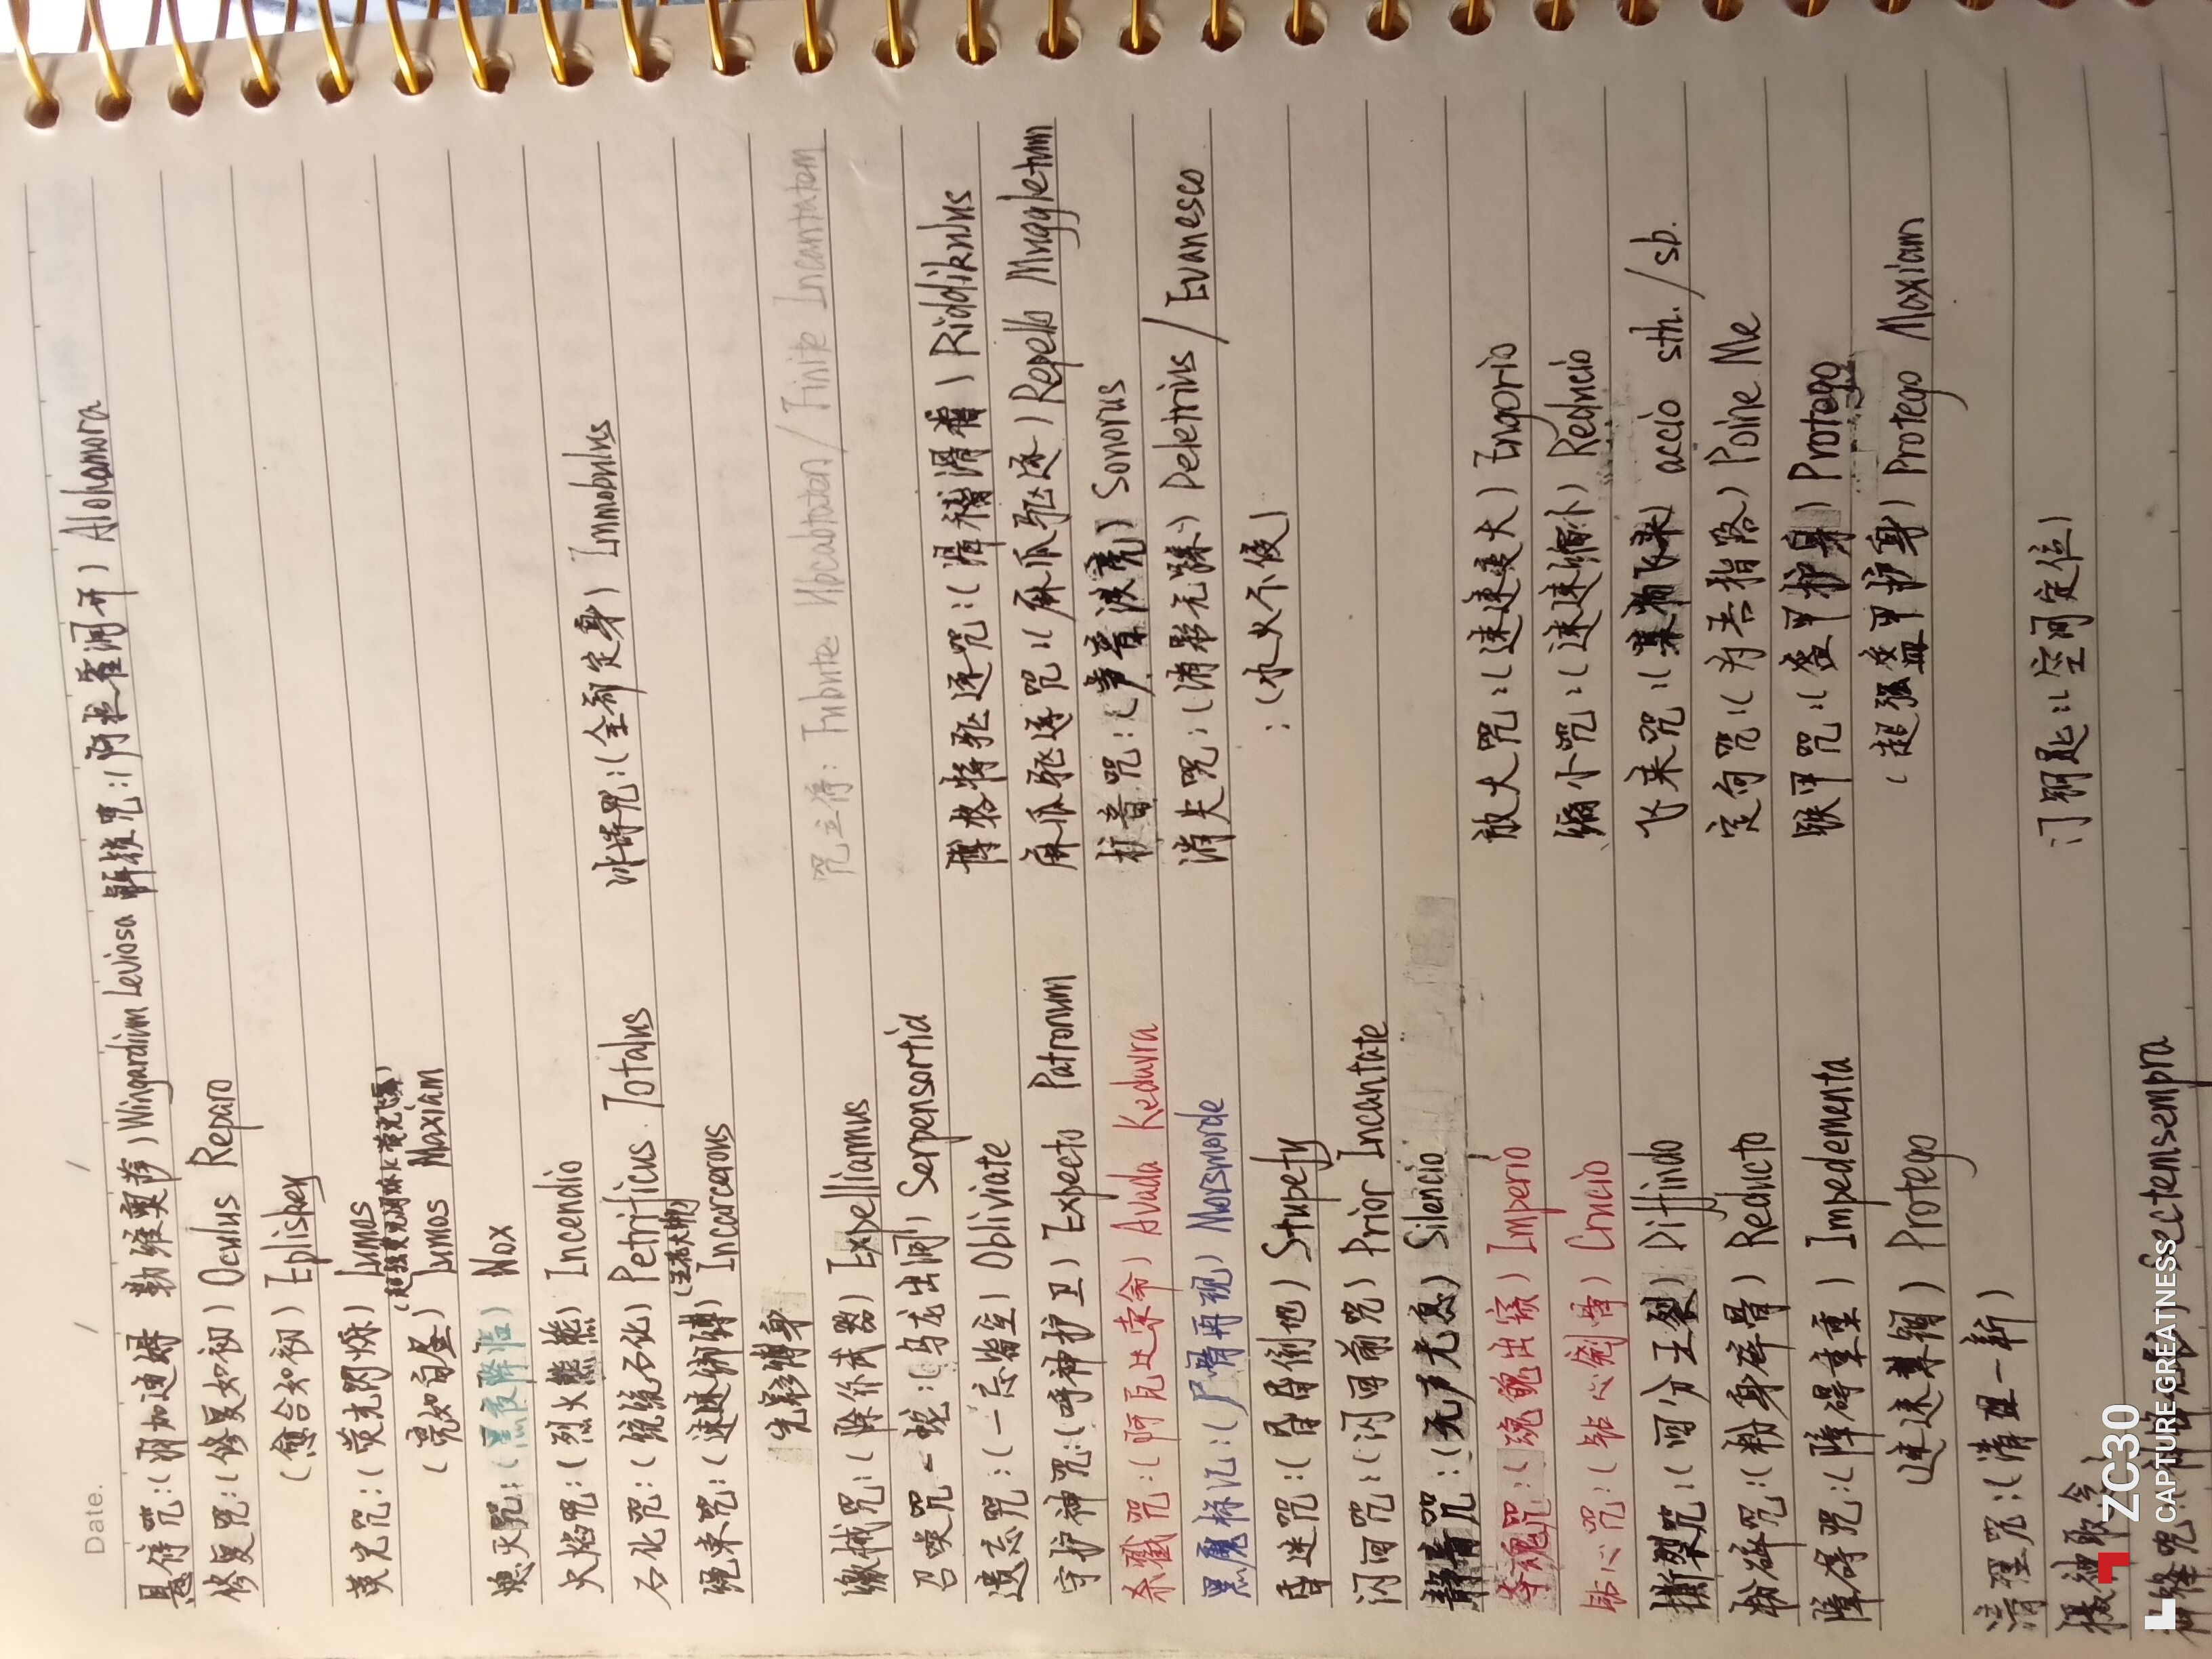 Date. / /
悬停咒:(羽加迪姆 勒维奥萨) Wingardium Leviosa 解锁咒:(阿拉霍洞开) Alohamora
修复咒:(修复如初) Oculus Reparo
(愈合如初) Epliskey
荧光咒:(荧光闪烁) Lumos
(亮如白昼) Lumos Maxiam
熄灭咒:(黑夜降临) Nox
火焰咒:(烈火熊熊) Incendio
石化咒:(统统石化) Petrificus Totalus 冰冻咒:(全部定身) Immobulus
绳束咒:(速速绑缚) Incarcerous
光影缚身 咒立停: Finite Incantatem
缴械咒:(除你武器) Expelliarmus
召唤咒-蛇:(乌龙出洞) Serpensortia 博格特驱逐咒:(滑稽滑稽) Riddikulus
遗忘咒:(一忘皆空) Obliviate 麻瓜驱逐咒:(麻瓜驱逐) Repello Muggletum
守护神咒:(呼神护卫) Expecto Patronum 扩音咒:(声音洪亮) Sonorus
杀戮咒:(阿瓦达索命) Avada Kedavra 消失咒:(消影无踪) Deletrius / Evanesco
黑魔标记:(尸骨再现) Morsmorde :(水火不侵)
昏迷咒:(昏昏倒地) Stupefy
闪回咒:(闪回前咒) Prior Incantate
静音咒:(无声无息) Silencio 放大咒:(速速变大) Engorio
夺魂咒:(魂魄出窍) Imperio 缩小咒:(速速缩小) Reducio
钻心咒:(钻心剜骨) Crucio 飞来咒:(某物飞来) accio sth. / sb.
撕裂咒:(四分五裂) Diffindo 定向咒:(为吾指路) Poine Me
粉碎咒:(粉身碎骨) Reducto 铁甲咒:(盔甲护身) Protego
障碍咒:(障碍重重) Impedementa (超强盔甲护身) Protego Maxiam
(速速禁锢) Protego
清理咒:(清理一新) 门钥匙:(空间定位)
摄神取念
Sectemsempra
ZC30
CAPTURE GREATNESS